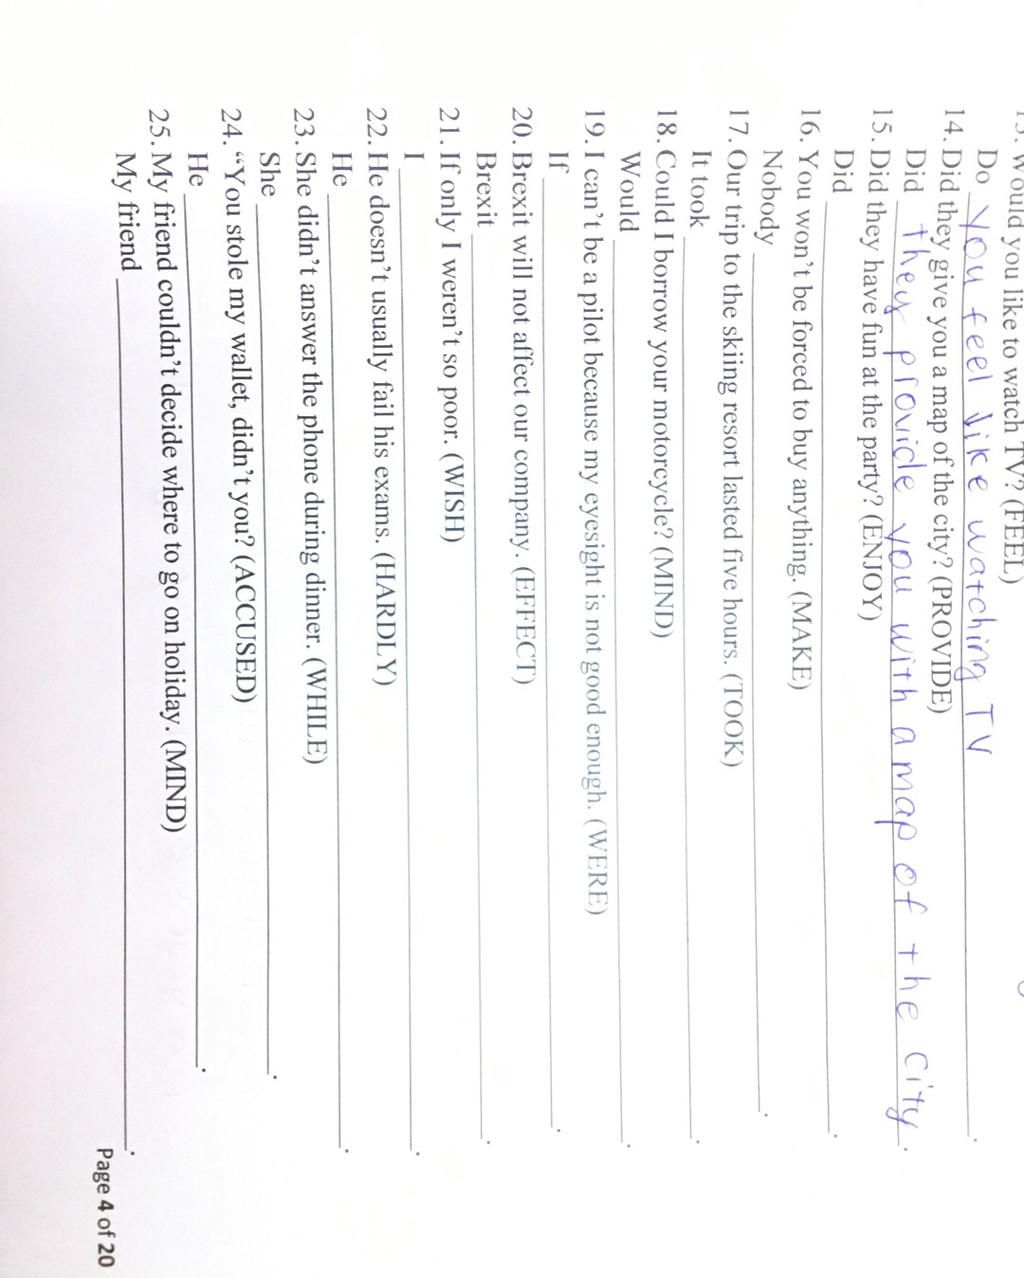 13. Would you like to watch TV? (FEEL)
Do you feel like watching TV.
14. Did they give you a map of the city? (PROVIDE)
Did they provide you with a map of the city.
15. Did they have fun at the party? (ENJOY)
Did .
16. You won't be forced to buy anything. (MAKE)
Nobody .
17. Our trip to the skiing resort lasted five hours. (TOOK)
It took .
18. Could I borrow your motorcycle? (MIND)
Would .
19. I can't be a pilot because my eyesight is not good enough. (WERE)
If .
20. Brexit will not affect our company. (EFFECT)
Brexit .
21. If only I weren't so poor. (WISH)
I .
22. He doesn't usually fail his exams. (HARDLY)
He .
23. She didn't answer the phone during dinner. (WHILE)
She .
24. "You stole my wallet, didn't you? (ACCUSED)
He .
25. My friend couldn't decide where to go on holiday. (MIND)
My friend .
Page 4 of 20